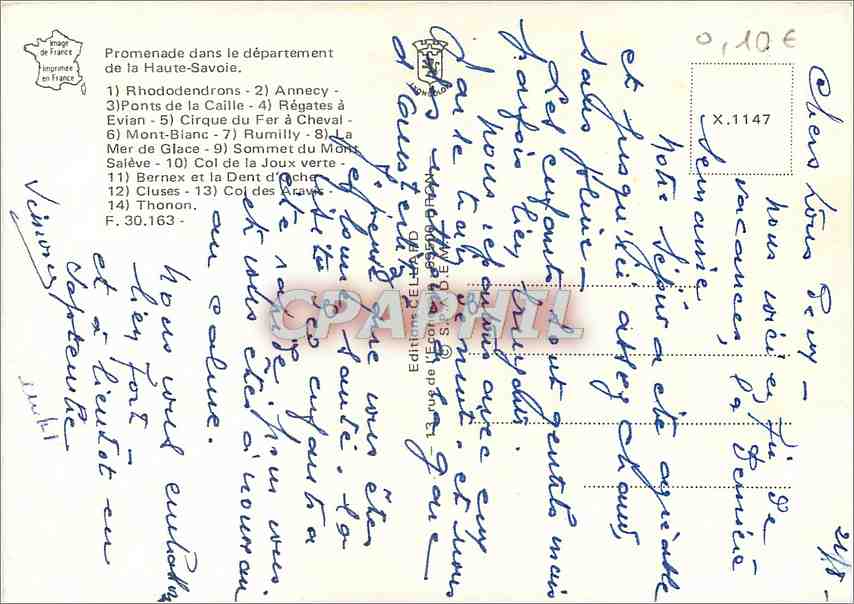 Image
de France
Imprimée
en France
Promenade dans le département
de la Haute-Savoie.
1) Rhododendrons - 2) Annecy -
3)Ponts de la Caille - 4) Régates à
Evian - 5) Cirque du Fer à Cheval -
6) Mont-Blanc - 7) Rumilly - 8) La
Mer de Glace - 9) Sommet du Mont
Salève - 10) Col de la Joux verte -
11) Bernex et la Dent d'Oche
12) Cluses - 13) Col des Aravis -
14) Thonon.
F. 30.163 -
0,10 €
X.1147
Editions CELLARD
13 rue de l'Ecor 69500 BRON
© S.P.A.D.E.M.
CPAPHIL
21/8 -
Chers tous deux -
nous voici en fin de
vacances, la dernière
semaine,
notre séjour a été agréable
et jusqu'ici assez chaud,
sans pluie -
Les enfants sont gentils mais
parfois bien bruyants.
nous repartons avec eux
par le train de nuit. et nous
les mettrons à la gare
d'Austerlitz
j'espère que vous êtes
en bonne santé. la
visite des enfants a
été rapide, pour vous
et vous êtes à nouveau
au calme.
nous vous embrassons
bien fort -
et à bientôt en
septembre